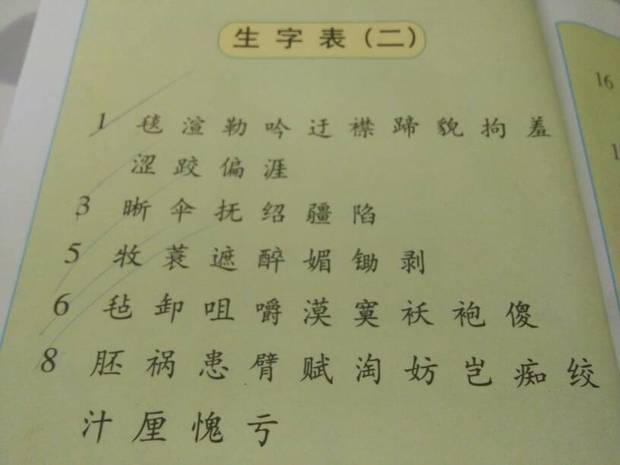 生字表（二）
1 毯 渲 勒 吟 迂 襟 蹄 貌 拘 羞
涩 跤 偏 涯
3 晰 伞 抚 绍 疆 陷
5 牧 蓑 遮 醉 媚 锄 剥
6 毡 卸 咀 嚼 漠 寞 袄 袍 傻
8 胚 祸 患 臂 赋 淘 妨 岂 痴 绞
汁 厘 愧 亏
16
1